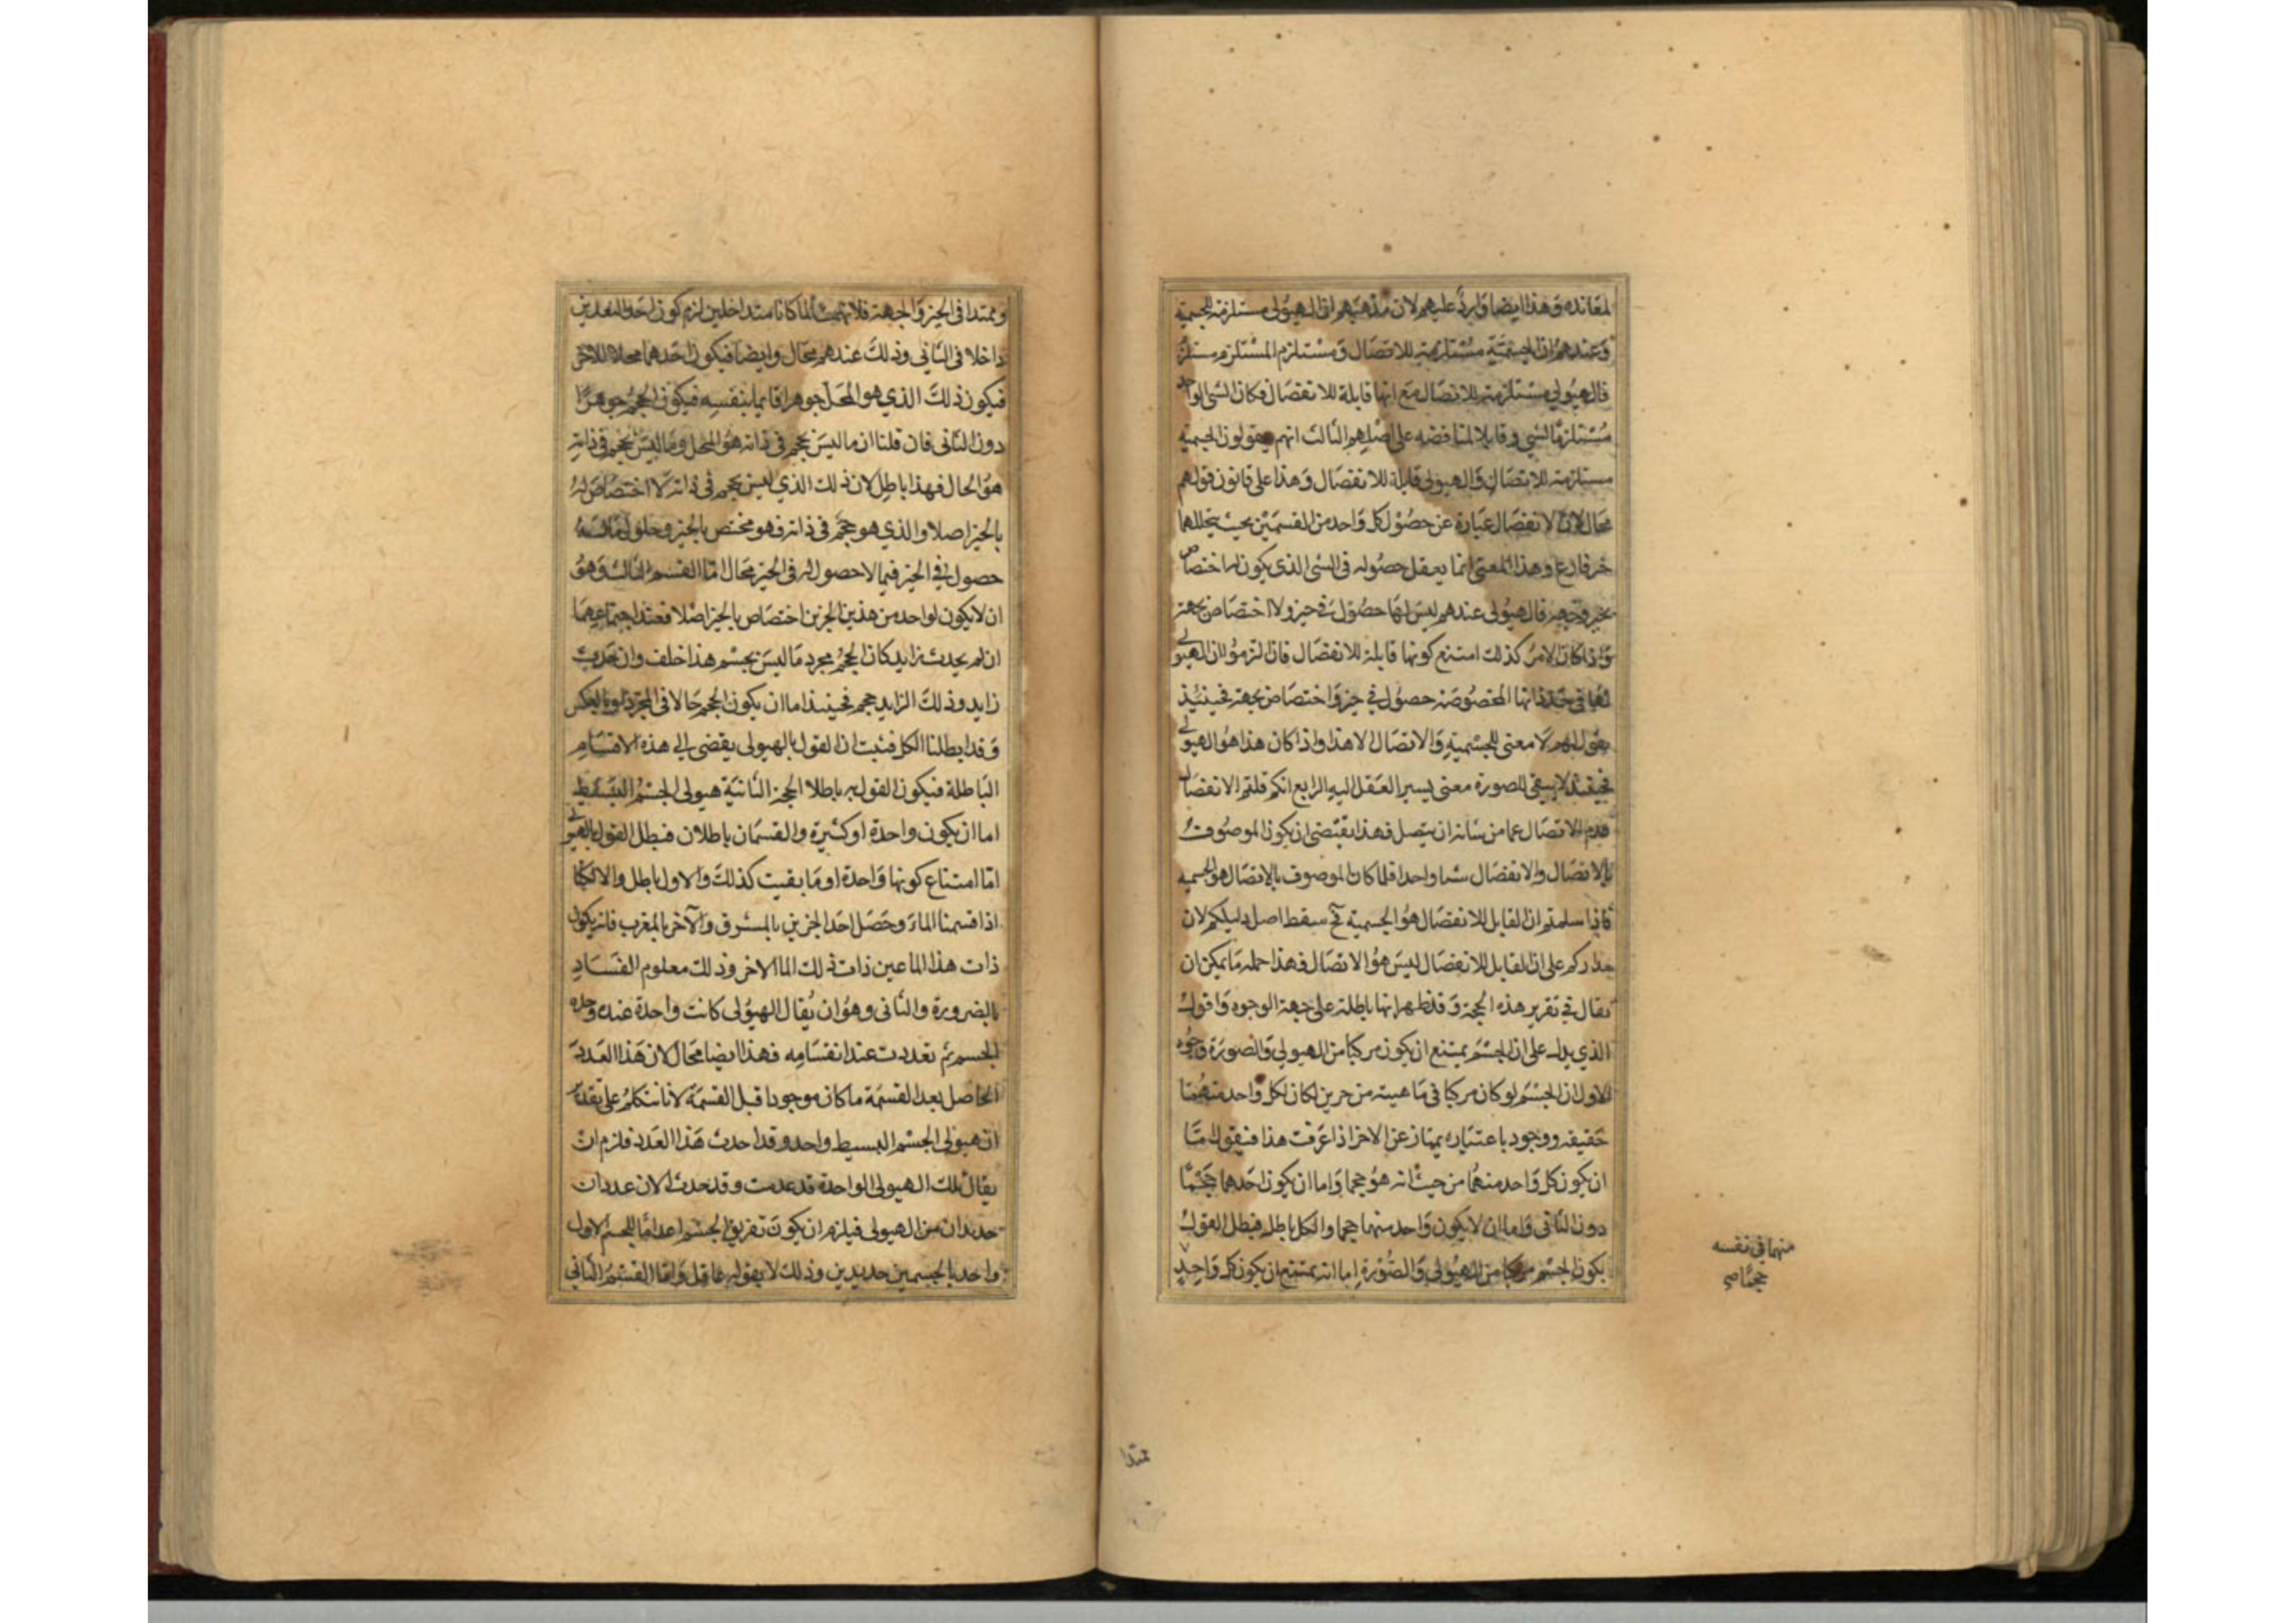 لمعانده وهذا ايضا وارد عليهم لان مذهبهم ان الهيولى مستلزمة للجسمية
وعندهم ان الجسمية مستلزمة للاتصال ومستلزم المستلزم مستلزم
فالهيولى مستلزمة للاتصال مع انها قابلة للانفصال فكان الشى الواحد
مستلزما لشى وقابلا لمناقضه على اصلهم الثالث انهم يقولون الجسمية
مستلزمة للاتصال والهيولى قابلة للانفصال وهذا على قانون قولهم
محال لان الانفصال عبارة عن حصول كل واحد من القسمين بحيث يتخللهما
فارغ وهذا المعنى انما يعقل حصوله فى الشى الذى يكون له اختصاص
بحيز وجهة فالهيولى عندهم ليس لها حصول فى حيز ولا اختصاص بجهة
واذا كان الامر كذلك امتنع كونها قابلة للانفصال فان التزموا ان الهيولى
لها فى حد ذاتها المخصوصة حصول فى حيز واختصاص بجهة فحينئذ
يقول لهم لا معنى للجسمية والاتصال الا هذا واذا كان هذا هو الهيولى
فحينئذ لا يبقى للصورة معنى يسير العقل اليه الرابع انكم قلتم الانفصال
عدم الاتصال عما من شانه ان يتصل فهذا يقتضى ان يكون الموصوف
بالاتصال والانفصال شيا واحدا فلما كان الموصوف بالاتصال هو الجسمية
فاذا سلمتم ان القابل للانفصال هو الجسمية فح سقط اصل دليلكم لان
مداركم على ان القابل للانفصال ليس هو الاتصال فهذا جملة ما يمكن ان
يقال فى تقرير هذه الحجة وقد ظهر انها باطلة على جهة الوجوه واقول
الذي يدل على ان الجسم يمتنع ان يكون مركبا من الهيولى والصورة وجوه
الاول ان الجسم لو كان مركبا فى ماهيته من جزين لكان لكل واحد منهما
حقيقه ووجود باعتباره يمتاز عن الاخر اذا عرفت هذا فنقول اما
ان يكون كل واحد منهما من حيث انه هو حجما واما ان يكون احدهما حجما
دون الثانى واما ان لا يكون واحد منهما حجما والكل باطل فبطل القول
بكون الجسم مركبا من الهيولى والصورة اما انه يمتنع ان يكون كل واحد
منهما في نفسه
حجما صح
ممتدا
وممتدا فى الحيز والجهة فلانهما لما كانا متداخلين لزم كون احد البعدين
داخلا فى الثانى وذلك عندهم محال وايضا فيكون احدهما محلا للاخر
فيكون ذلك الذي هو المحل جوهرا قايما بنفسه فيكون الحجم جوهرا
دون الثانى فان قلنا ان ما ليس بحجم فى ذاته هو المحل وما ليس بحجم فى ذاته
هو الحال فهذا باطل لان ذلك الذي ليس بحجم فى ذاته لا اختصاص له
بالحيز اصلا والذي هو حجم فى ذاته فهو مختص بالحيز وحلول ماله
حصول فى الحيز فيما لا حصول له فى الحيز محال اما القسم الثالث وهو
ان لا يكون لواحد من هذين الجزين اختصاص بالحيز اصلا فعند اجتماعهما
ان لم يحدث زايد كان الحجم مجرد ما ليس بجسم هذا خلف وان حدث
زايد وذلك الزايد حجم فحينئذ اما ان يكون الحجم حالا فى المجرد او بالعكس
وقد ابطلنا الكل فثبت ان القول بالهيولى يفضى الى هذه الاقسام
الباطلة فيكون القول به باطلا الحجة الثانية هيولى الجسم البسيط
اما ان يكون واحدة او كثيرة والقسمان باطلان فبطل القول بالهيولى
اما امتناع كونها واحدة او ما بقيت كذلك والاول باطل والا لكنا
اذا قسمنا الماء وحصل احد الجزين بالمشرق والآخر بالمغرب فانه يكون
ذات هذا الما عين ذات ذلك الما الاخر وذلك معلوم الفساد
بالضرورة والثانى وهو ان يقال الهيولى كانت واحدة عند وحدة
الجسم ثم تعددت عند انقسامه فهذا ايضا محال لان هذا العدد
الحاصل بعد القسمة ما كان موجودا قبل القسمة لانا نتكلم على تقدير
ان هيولى الجسم البسيط واحد وقد احدث هذا العدد فلزم ان
يقال تلك الهيولى الواحدة قد عدمت وقد حدث الان عددان
جديدان من الهيولى فيلزم ان يكون تفريق الجسم اعداما للجسم الاول
واحدا بالجسمين جديدين وذلك لا يقوله عاقل واما القسم الثانى